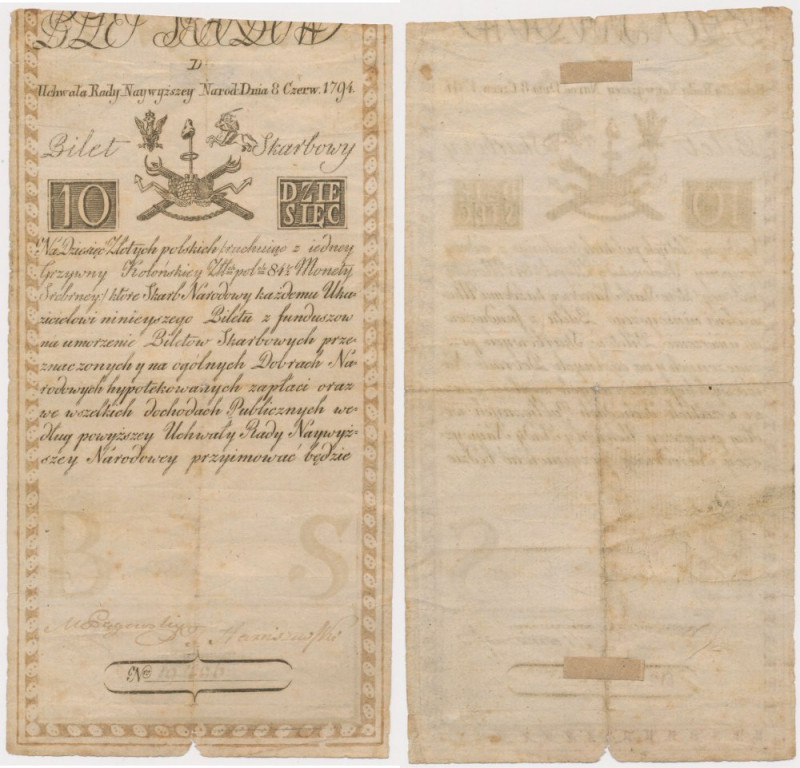 D
Uchwała Rady Naywyższey Narod: Dnia 8 Czerw. 1794.
Bilet Skarbowy
10 DZIE SIĘC
Na Dziesięc Złotych polskich (rachuiąc z iedney
Grzywny Kolońskiey Złtt: pol: 84½ Monety
Srebrney) które Skarb Narodowy każdemu Uka-
zicielowi ninieyszego Biletu z funduszow
na umorzenie Biletów Skarbowych prze-
znaczonych y na ogólnych Dobrach Na-
rodowych hypotekowanych zapłaci oraz
we wszelkich dochodach Publicznych we-
dług powyższey Uchwały Rady Naywyż-
szey Narodowey przyimować będzie
B S
No